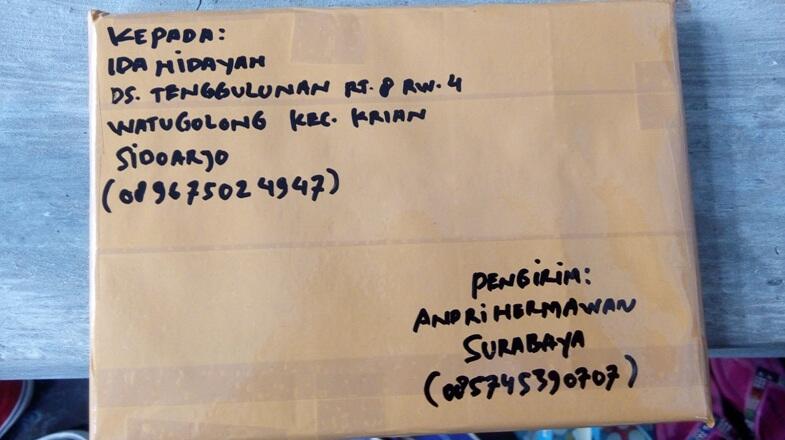 KEPADA:
IDA HIDAYAH
DS. TENGGULUNAN RT. 8 RW. 4
WATUGOLONG KEC. KRIAN
SIDOARJO
(089675024947)
PENGIRIM:
ANDRI HERMAWAN
SURABAYA
(085745390707)